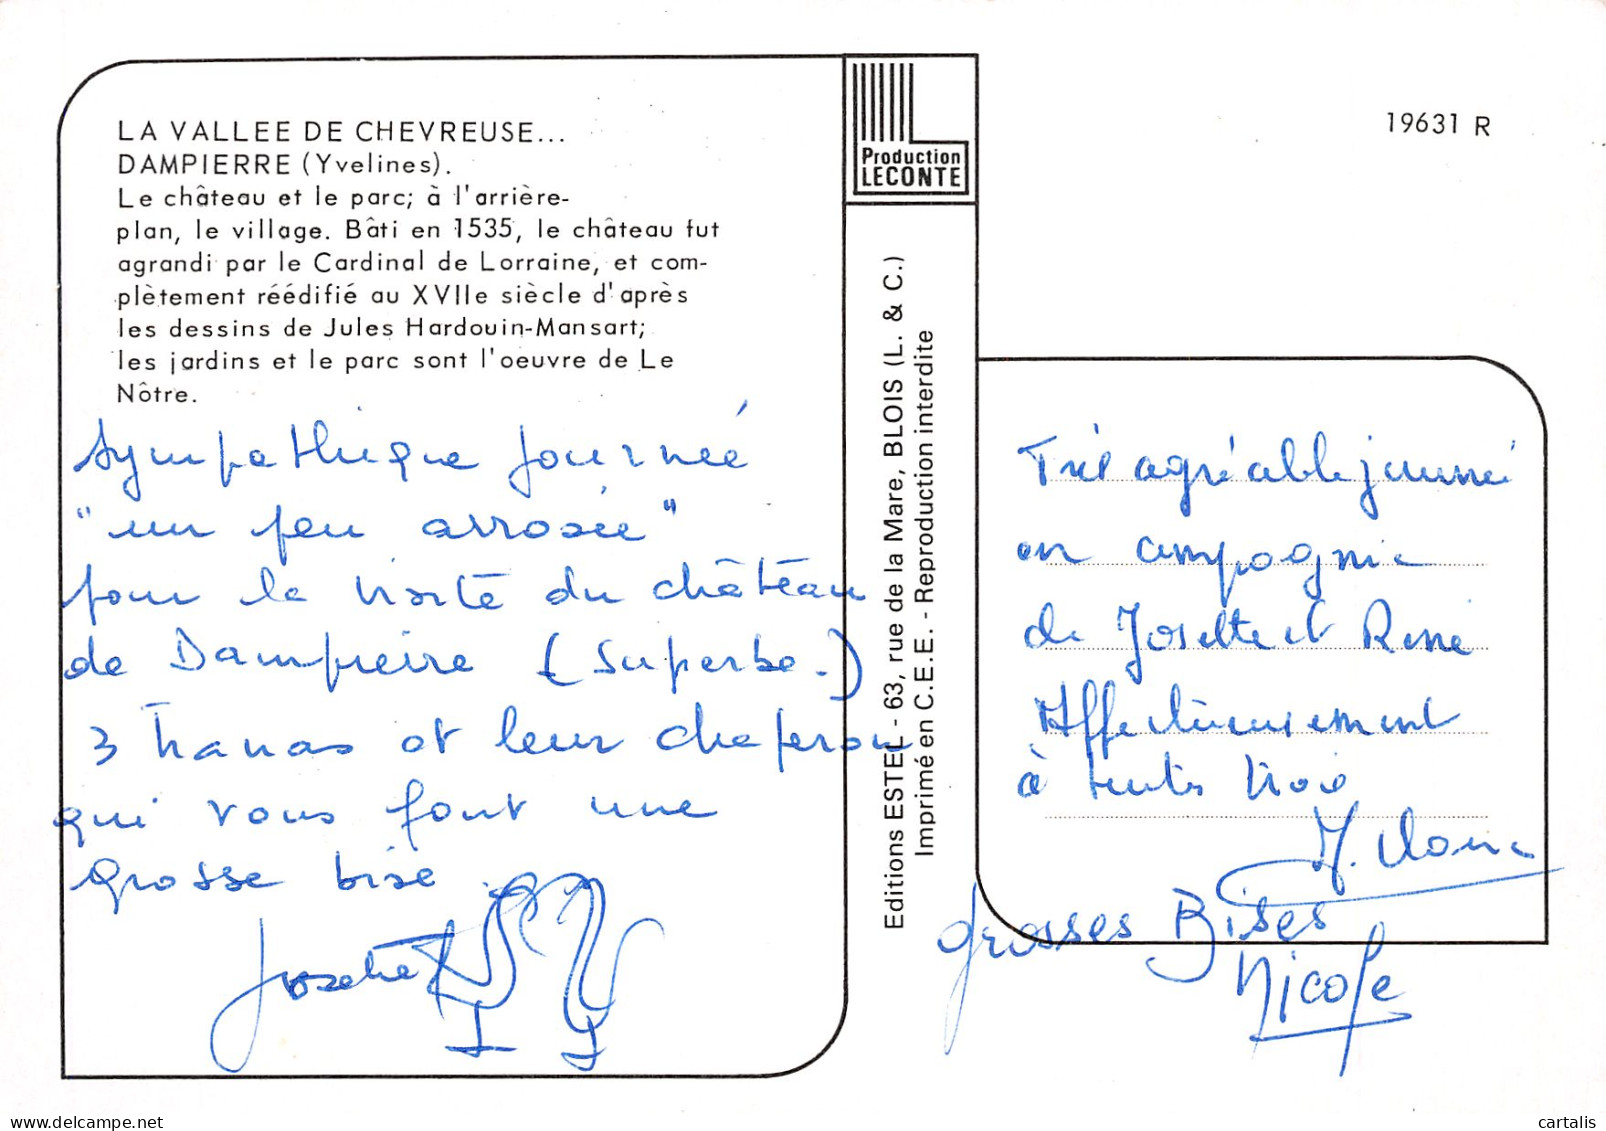 LA VALLEE DE CHEVREUSE...
DAMPIERRE (Yvelines).
Le château et le parc; à l'arrière-
plan, le village. Bâti en 1535, le château fut
agrandi par le Cardinal de Lorraine, et com-
plètement réédifié au XVIIe siècle d'après
les dessins de Jules Hardouin-Mansart;
les jardins et le parc sont l'oeuvre de Le
Nôtre.
Sympathique journée
"un peu arrosée"
pour la visite du château
de Dampierre (Superbe.)
3 nanas et leur chaperon
qui vous font une
grosse bise.
Josette
Production
LECONTE
Editions ESTEL - 63, rue de la Mare, BLOIS (L. & C.)
Imprimé en C.E.E. - Reproduction interdite
19631 R
Très agréable journée
en compagnie
de Josette et René
Affectueusement
à toutes trois
Grosses Bises
Nicole
cartalis